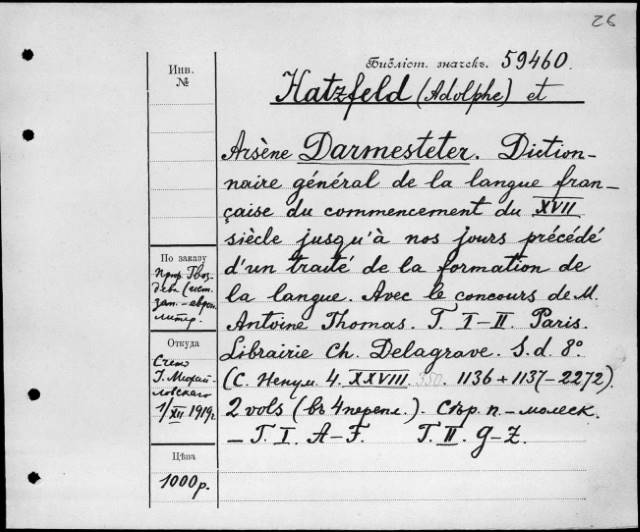 26
Библіот. значекъ. 59460.
Hatzfeld (Adolphe) et
Arsène Darmesteter. Diction-
naire général de la langue fran-
çaise du commencement du XVII
siècle jusqu'à nos jours précédé
d'un traité de la formation de
la langue. Avec le concours de M.
Antoine Thomas. T. I-II. Paris.
Librairie Ch. Delagrave. S. d. 8°.
(С. Ненум. 4. XXVIII. 350. 1136 + 1137-2272).
2 vols (въ 4 перепл.). Сѣр. п.-молеск.
- T. I. A-F. T. II. G-Z.
Инв.
№
По заказу
Проф. Гвоз-
дева (ист.
зап.-европ.
литер.
Откуда
Счетъ
Г. Михай-
ловскаго
1/XII 1919 г.
Цѣна
1000 р.